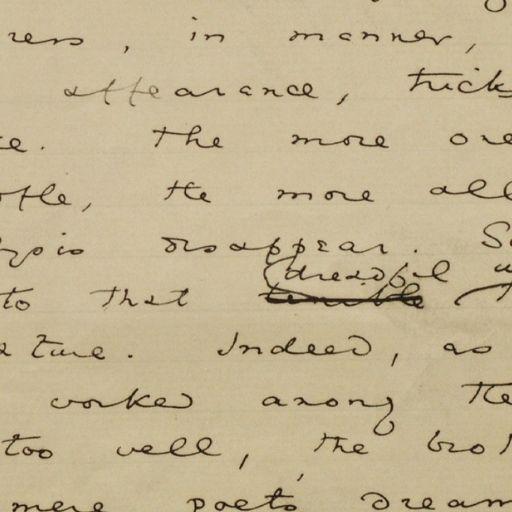 ress, in manner,
appearance, trick
ce. The more one
ople, the more all
lysis disappear. S
dreadful u
to that terrible
ature. Indeed, as
worked among the
too well, the bro
mere poet's dream